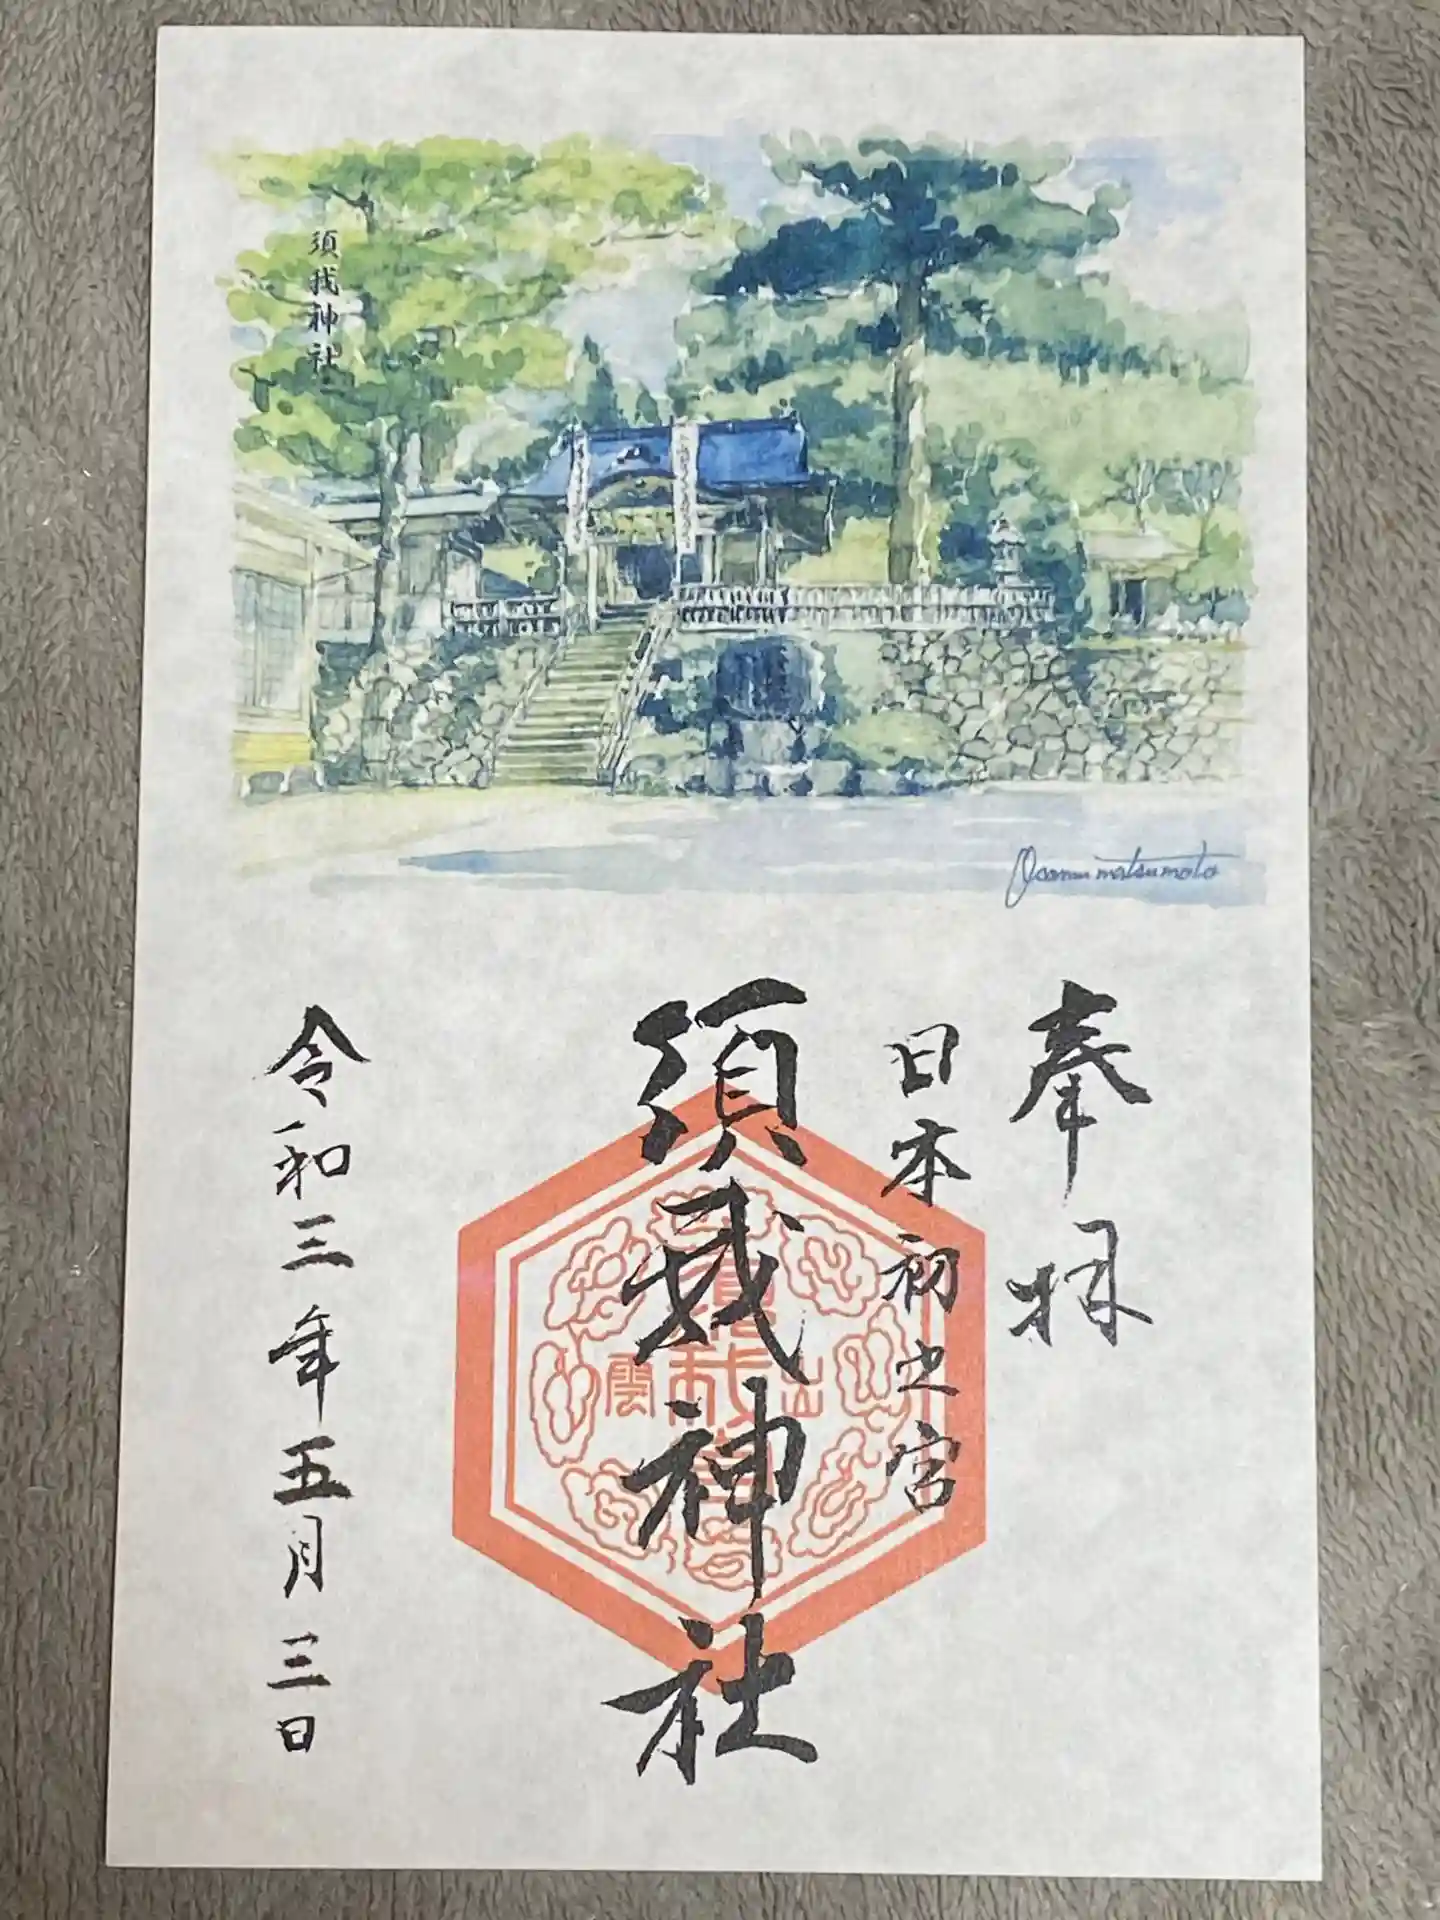 須我神社
Osamu matsumoto
奉拝
日本初之宮
須我神社
出雲
須我宮
令和三年五月三日